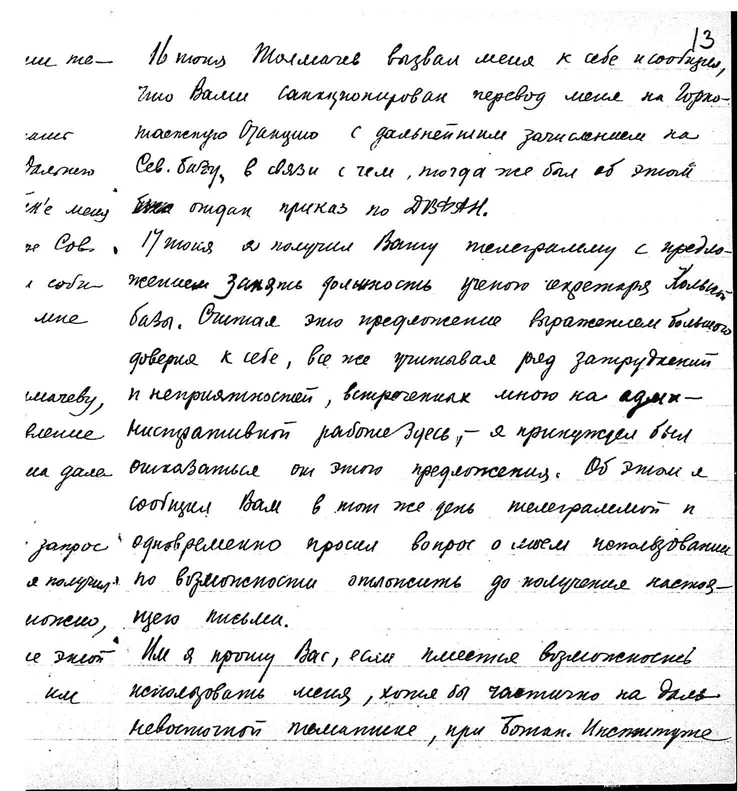 13
ии те-
16 июня Толмачев вызвал меня к себе и сообщил,
что Вами санкционирован перевод меня на Горно-
таежную Станцию с дальнейшим зачислением на
дальнего
Сев. базу, в связи с чем, тогда же был об этом
меня
отдан приказ по ДВФАН.
Сов.
17 июня я получил Вашу телеграмму с предло-
соби-
жением занять должность ученого секретаря Кольской
мне
базы. Считая это предложение выражением большого
доверия к себе, все же учитывая ряд затруднений
мачеву,
и неприятностей, встреченных мною на адми-
вление
нистративной работе здесь, – я принужден был
на дале
отказаться от этого предложения. Об этом я
сообщил Вам в тот же день телеграммой и
запрос
одновременно просил вопрос о моем использовании
я получил
по возможности отложить до получения настоя-
можно,
щего письма.
се этой
Им я прошу Вас, если имеется возможность
им
использовать меня, хотя бы частично на даль
невосточной тематике, при Ботан. Институте